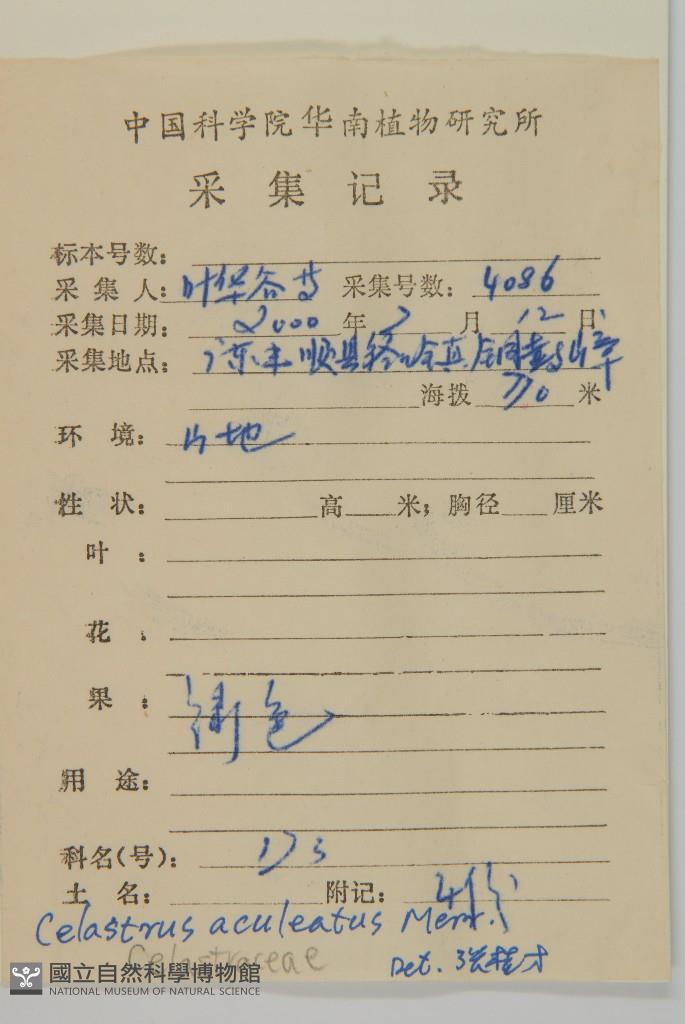 中国科学院华南植物研究所
采集记录
标本号数：
采集人：叶华谷等 采集号数：4086
采集日期：2000年7月12日
采集地点：广东丰顺县 铜鼓嶂
海拨 770 米
环境：山地
性状： 高 米；胸径 厘米
叶：
花：
果： 绿色
用途：
科名(号)：173
土名： 附记：4份
Celastrus aculeatus Merr.
Celastraceae
Det. 张桂才
國立自然科學博物館
NATIONAL MUSEUM OF NATURAL SCIENCE